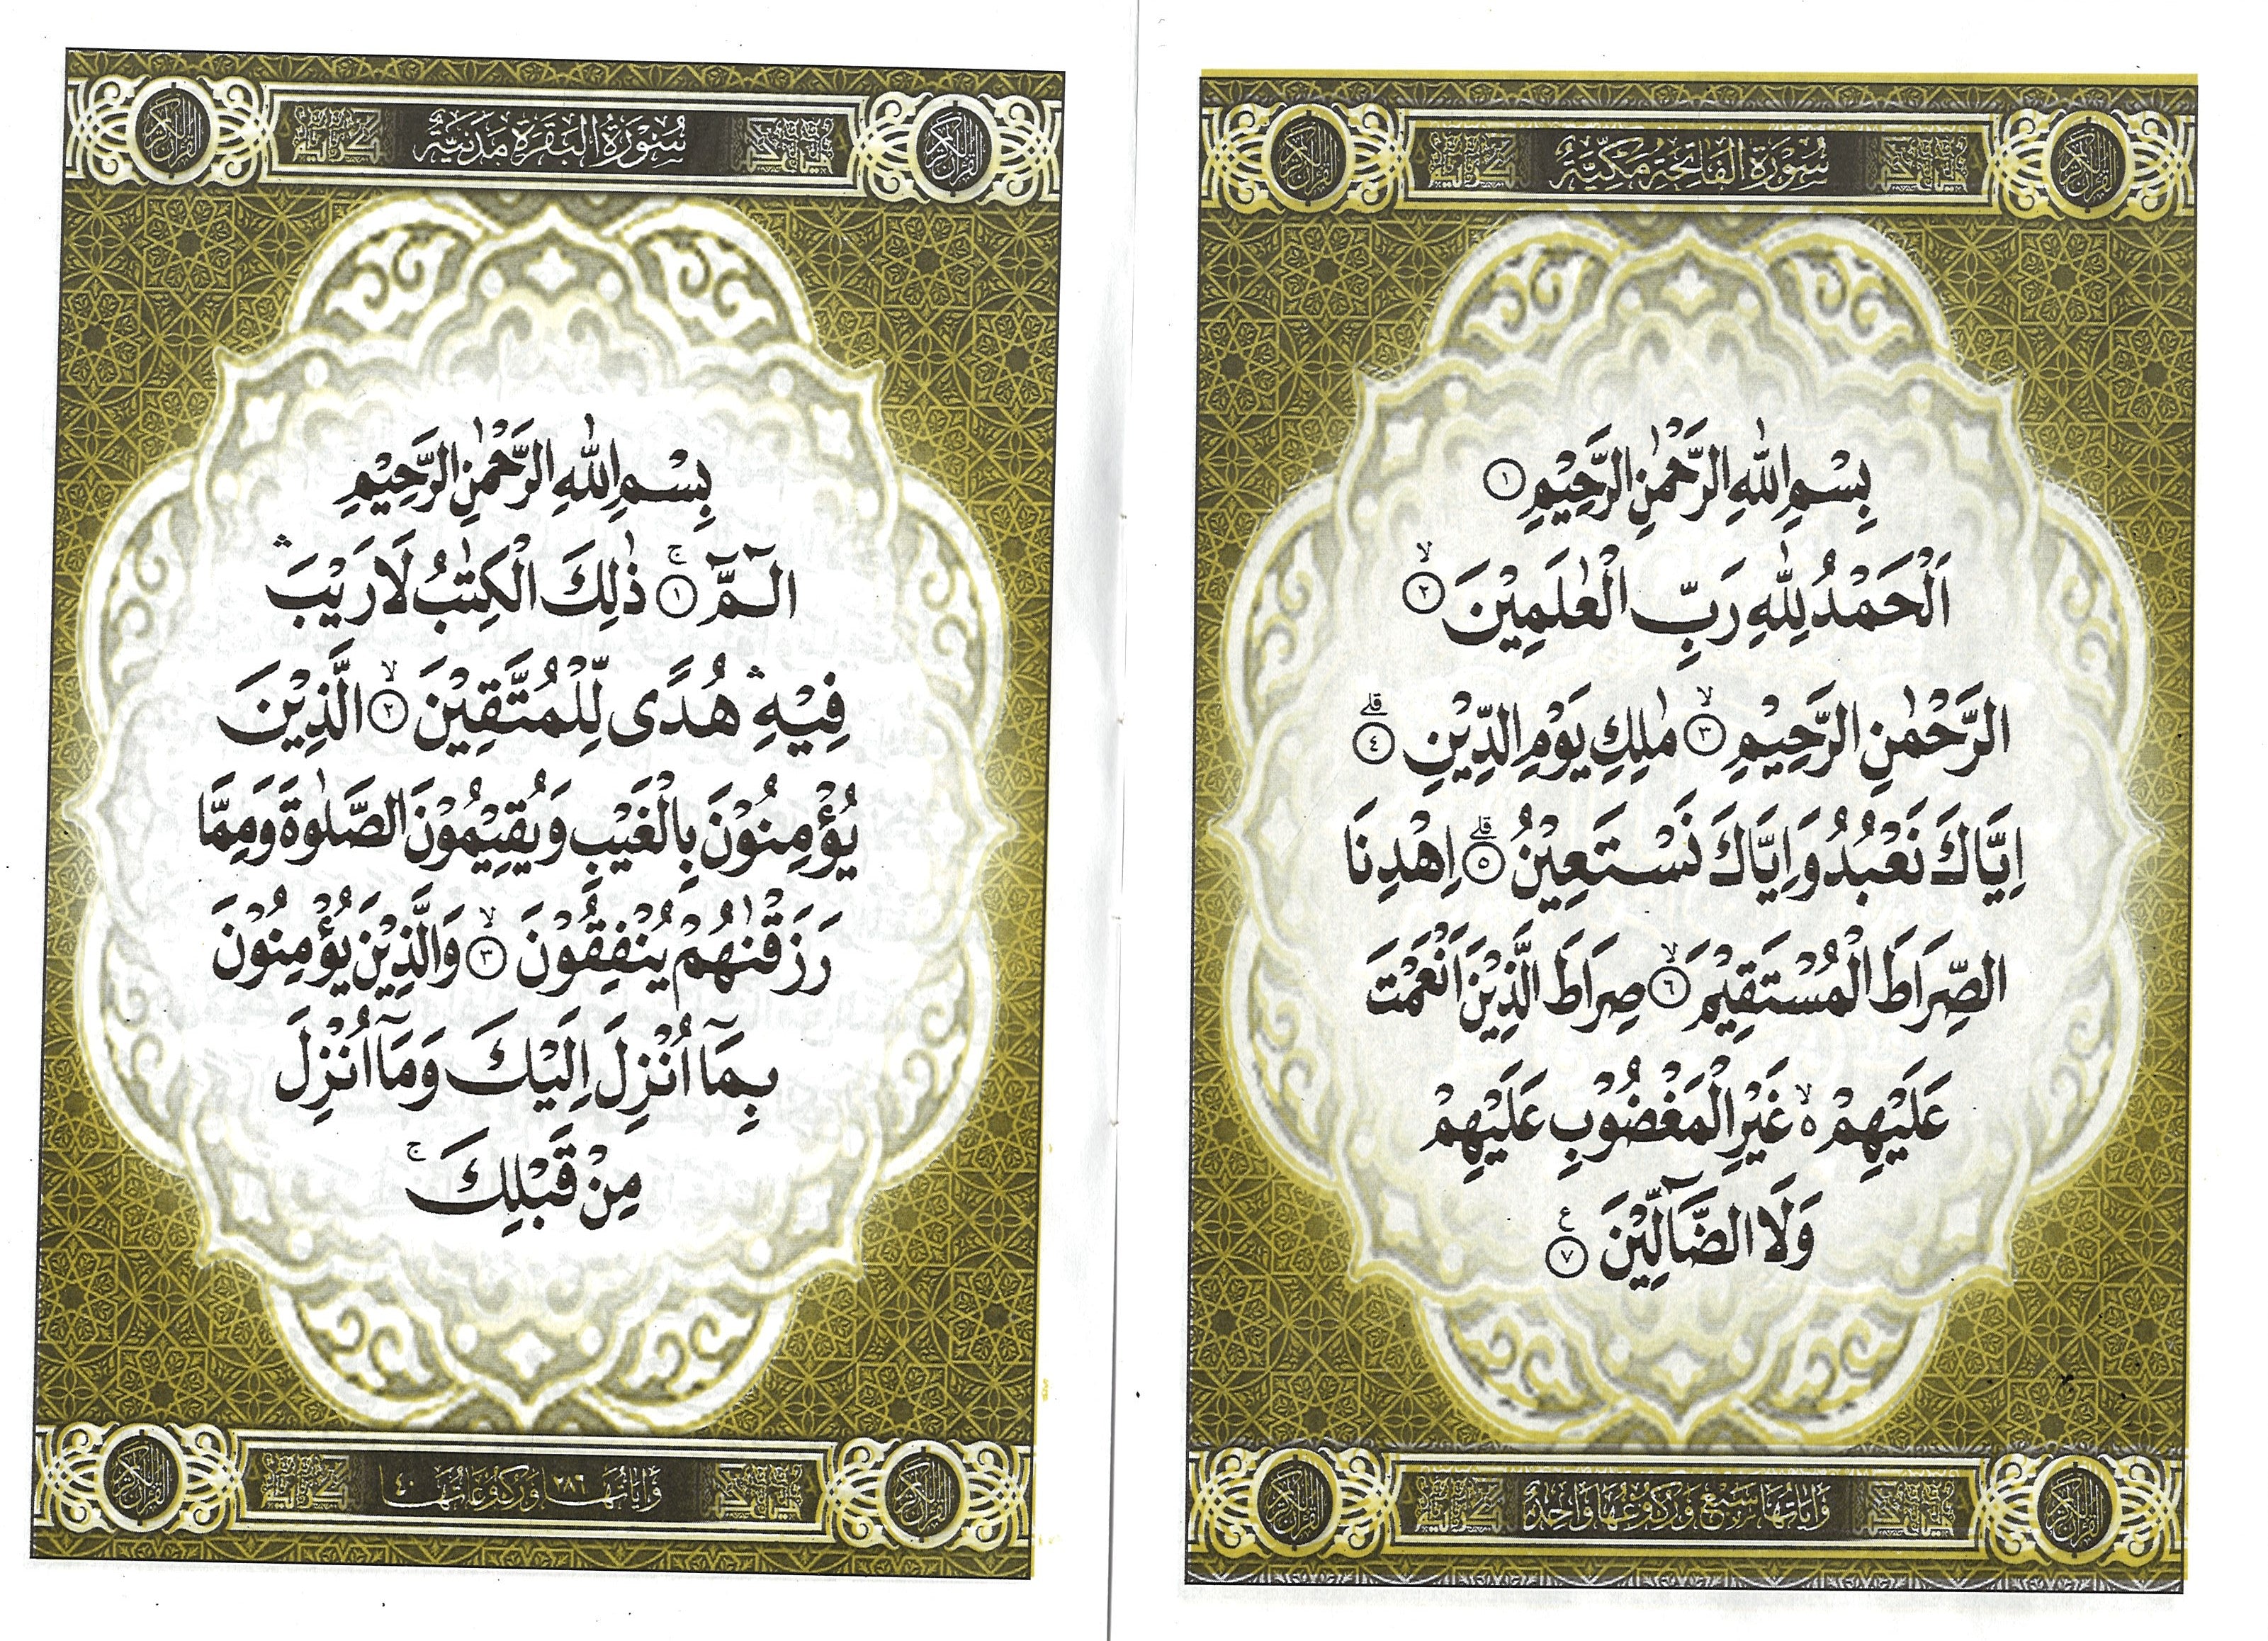 سُوْرَةُ الْفَاتِحَةِ مَكِّيَّةٌ
بِسْمِ اللّٰهِ الرَّحْمٰنِ الرَّحِيْمِ ۝١
اَلْحَمْدُ لِلّٰهِ رَبِّ الْعٰلَمِيْنَ ۙ۝٢
الرَّحْمٰنِ الرَّحِيْمِ ۙ۝٣ مٰلِكِ يَوْمِ الدِّيْنِ ۗ۝٤
اِيَّاكَ نَعْبُدُ وَاِيَّاكَ نَسْتَعِيْنُ ۗ۝٥ اِهْدِنَا
الصِّرَاطَ الْمُسْتَقِيْمَ ۙ۝٦ صِرَاطَ الَّذِيْنَ اَنْعَمْتَ
عَلَيْهِمْ ەۙ غَيْرِ الْمَغْضُوْبِ عَلَيْهِمْ
وَلَا الضَّآلِّيْنَ ۝٧ ع
وَاٰيَاتُهَا سَبْعٌ وَرُكُوْعُهَا وَاحِدَةٌ
سُوْرَةُ الْبَقَرَةِ مَدَنِيَّةٌ
بِسْمِ اللّٰهِ الرَّحْمٰنِ الرَّحِيْمِ
الٓـمّٓ ۚ۝١ ذٰلِكَ الْكِتٰبُ لَا رَيْبَ ۛ
فِيْهِ ۛ هُدًى لِّلْمُتَّقِيْنَ ۙ۝٢ الَّذِيْنَ
يُؤْمِنُوْنَ بِالْغَيْبِ وَيُقِيْمُوْنَ الصَّلٰوةَ وَمِمَّا
رَزَقْنٰهُمْ يُنْفِقُوْنَ ۙ۝٣ وَالَّذِيْنَ يُؤْمِنُوْنَ
بِمَآ اُنْزِلَ اِلَيْكَ وَمَآ اُنْزِلَ
مِنْ قَبْلِكَ ۚ
وَاٰيَاتُهَا ٢٨٦ وَرُكُوْعَاتُهَا ٤٠